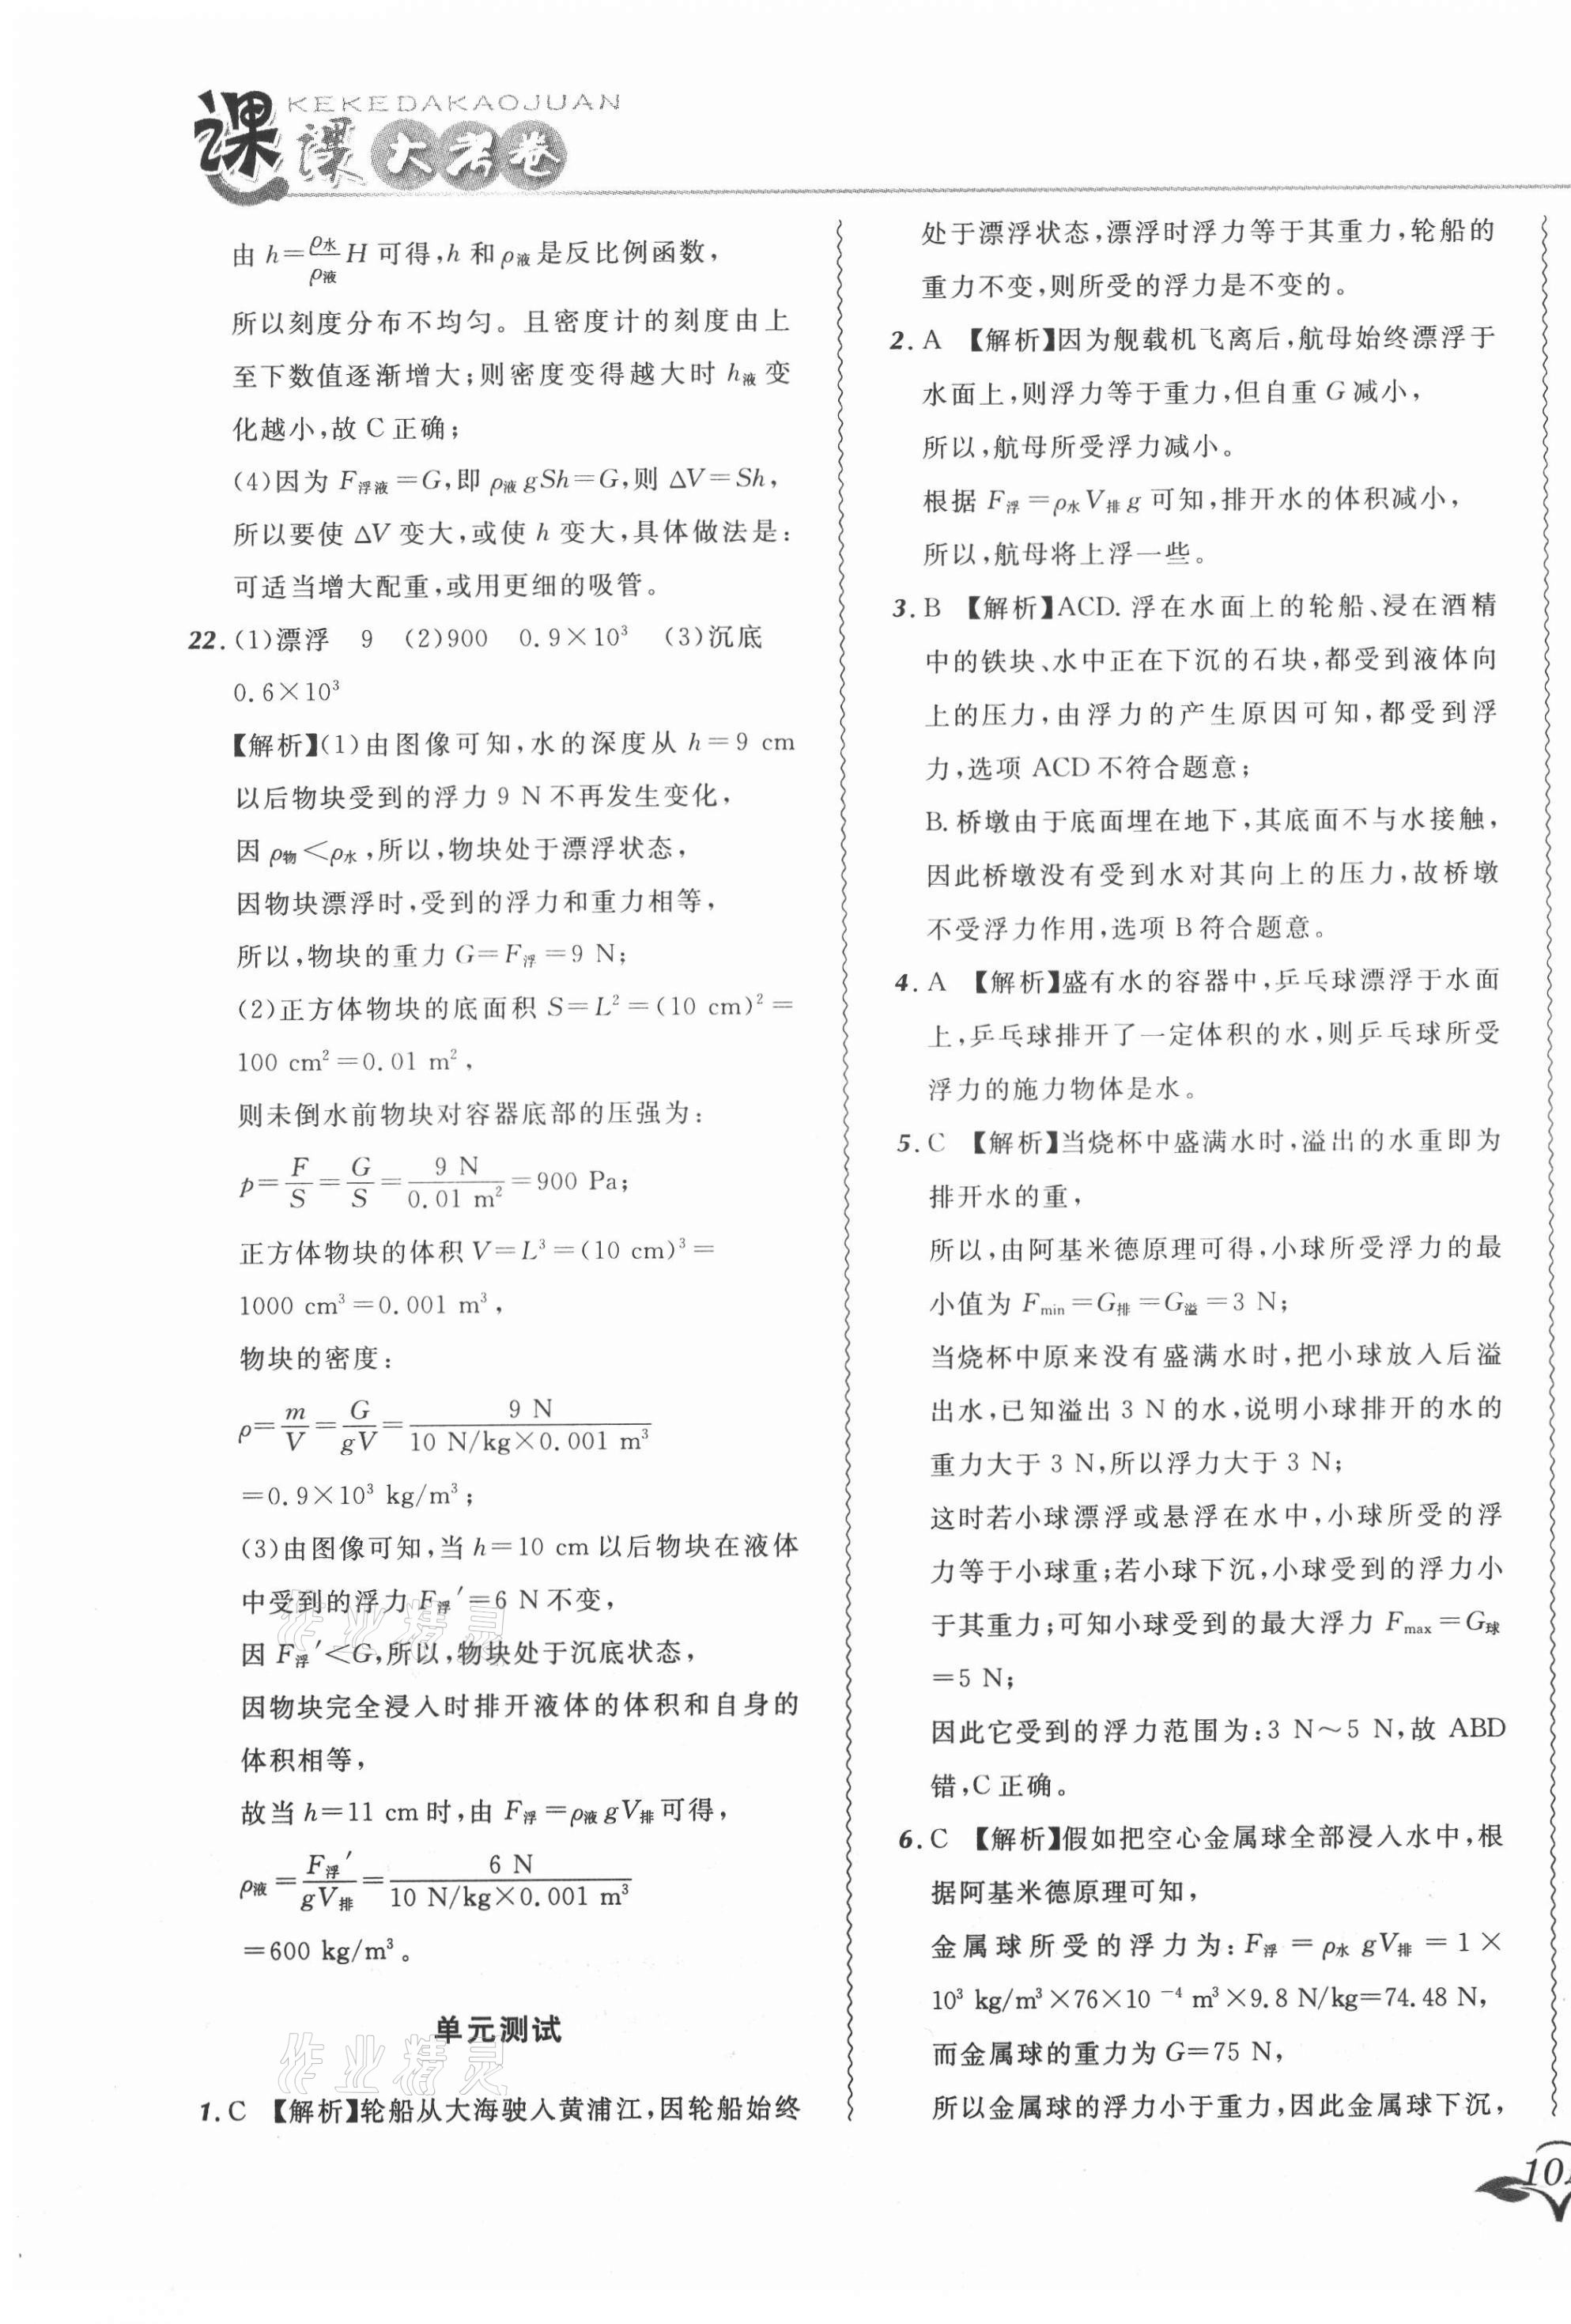 KEKEDAKAOJUAN
课课大考卷
由 h=ρ水/ρ液 H 可得,h 和 ρ液 是反比例函数,
所以刻度分布不均匀。且密度计的刻度由上
至下数值逐渐增大;则密度变得越大时 h液 变
化越小,故 C 正确;
(4)因为 F浮液=G,即 ρ液gSh=G,则 ΔV=Sh,
所以要使 ΔV 变大,或使 h 变大,具体做法是:
可适当增大配重,或用更细的吸管。
22.(1)漂浮 9 (2)900 0.9×10³ (3)沉底
0.6×10³
【解析】(1)由图像可知,水的深度从 h=9 cm
以后物块受到的浮力 9 N 不再发生变化,
因 ρ物<ρ水,所以,物块处于漂浮状态,
因物块漂浮时,受到的浮力和重力相等,
所以,物块的重力 G=F浮=9 N;
(2)正方体物块的底面积 S=L²=(10 cm)²=
100 cm²=0.01 m²,
则未倒水前物块对容器底部的压强为:
p=F/S=G/S=9 N/0.01 m²=900 Pa;
正方体物块的体积 V=L³=(10 cm)³=
1000 cm³=0.001 m³,
物块的密度:
ρ=m/V=G/gV=9 N/10 N/kg×0.001 m³
=0.9×10³ kg/m³;
(3)由图像可知,当 h=10 cm 以后物块在液体
中受到的浮力 F浮′=6 N 不变,
因 F浮′<G,所以,物块处于沉底状态,
因物块完全浸入时排开液体的体积和自身的
体积相等,
故当 h=11 cm 时,由 F浮=ρ液gV排 可得,
ρ液=F浮′/gV排=6 N/10 N/kg×0.001 m³
=600 kg/m³。
单元测试
1. C 【解析】轮船从大海驶入黄浦江,因轮船始终
处于漂浮状态,漂浮时浮力等于其重力,轮船的
重力不变,则所受的浮力是不变的。
2. A 【解析】因为舰载机飞离后,航母始终漂浮于
水面上,则浮力等于重力,但自重 G 减小,
所以,航母所受浮力减小。
根据 F浮=ρ水V排g 可知,排开水的体积减小,
所以,航母将上浮一些。
3. B 【解析】ACD. 浮在水面上的轮船、浸在酒精
中的铁块、水中正在下沉的石块,都受到液体向
上的压力,由浮力的产生原因可知,都受到浮
力,选项 ACD 不符合题意;
B. 桥墩由于底面埋在地下,其底面不与水接触,
因此桥墩没有受到水对其向上的压力,故桥墩
不受浮力作用,选项 B 符合题意。
4. A 【解析】盛有水的容器中,乒乓球漂浮于水面
上,乒乓球排开了一定体积的水,则乒乓球所受
浮力的施力物体是水。
5. C 【解析】当烧杯中盛满水时,溢出的水重即为
排开水的重,
所以,由阿基米德原理可得,小球所受浮力的最
小值为 Fmin=G排=G溢=3 N;
当烧杯中原来没有盛满水时,把小球放入后溢
出水,已知溢出 3 N 的水,说明小球排开的水的
重力大于 3 N,所以浮力大于 3 N;
这时若小球漂浮或悬浮在水中,小球所受的浮
力等于小球重;若小球下沉,小球受到的浮力小
于其重力;可知小球受到的最大浮力 Fmax=G球
=5 N;
因此它受到的浮力范围为:3 N～5 N,故 ABD
错,C 正确。
6. C 【解析】假如把空心金属球全部浸入水中,根
据阿基米德原理可知,
金属球所受的浮力为:F浮=ρ水gV排=1×
10³ kg/m³×76×10⁻⁴ m³×9.8 N/kg=74.48 N,
而金属球的重力为 G=75 N,
所以金属球的浮力小于重力,因此金属球下沉,
作业精灵
作业精灵